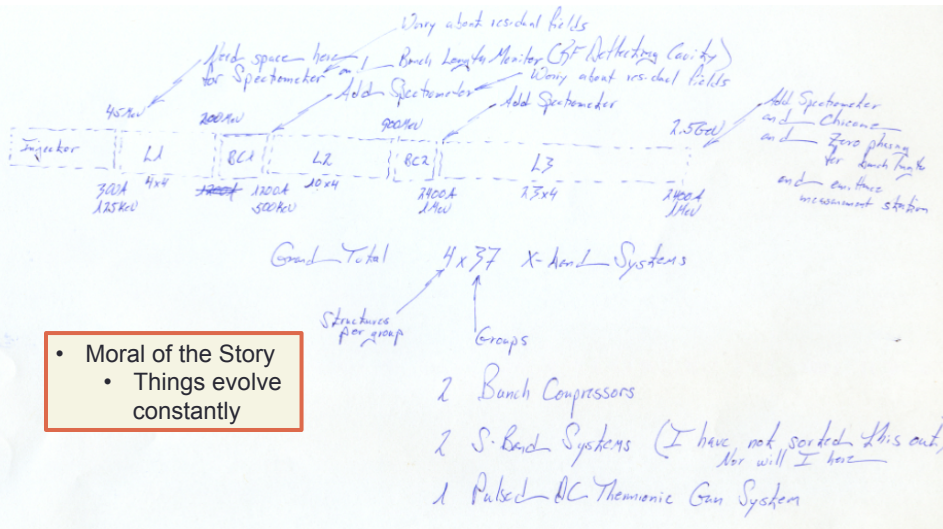 Worry about residual fields
Need space here
for Spectrometer and Bunch Length Monitor (RF Deflecting Cavity)
Worry about residual fields
Add Spectrometer
Add Spectrometer
Add Spectrometer
and Chicane
and Zero phasing
for bunch length
and emittance
measurement station
45MeV
200MeV
900MeV
2.5GeV
Injector
L1
BC1
L2
BC2
L3
300A
125KeV
4x4
1200A
1200A
500KeV
10x4
2400A
1MeV
23x4
2400A
1MeV
Grand Total 4x37 X-band Systems
Structures
per group
Groups
• Moral of the Story
• Things evolve
constantly
2 Bunch Compressors
2 S-Band Systems (I have not sorted this out,
Nor will I here
1 Pulsed DC Thermionic Gun System